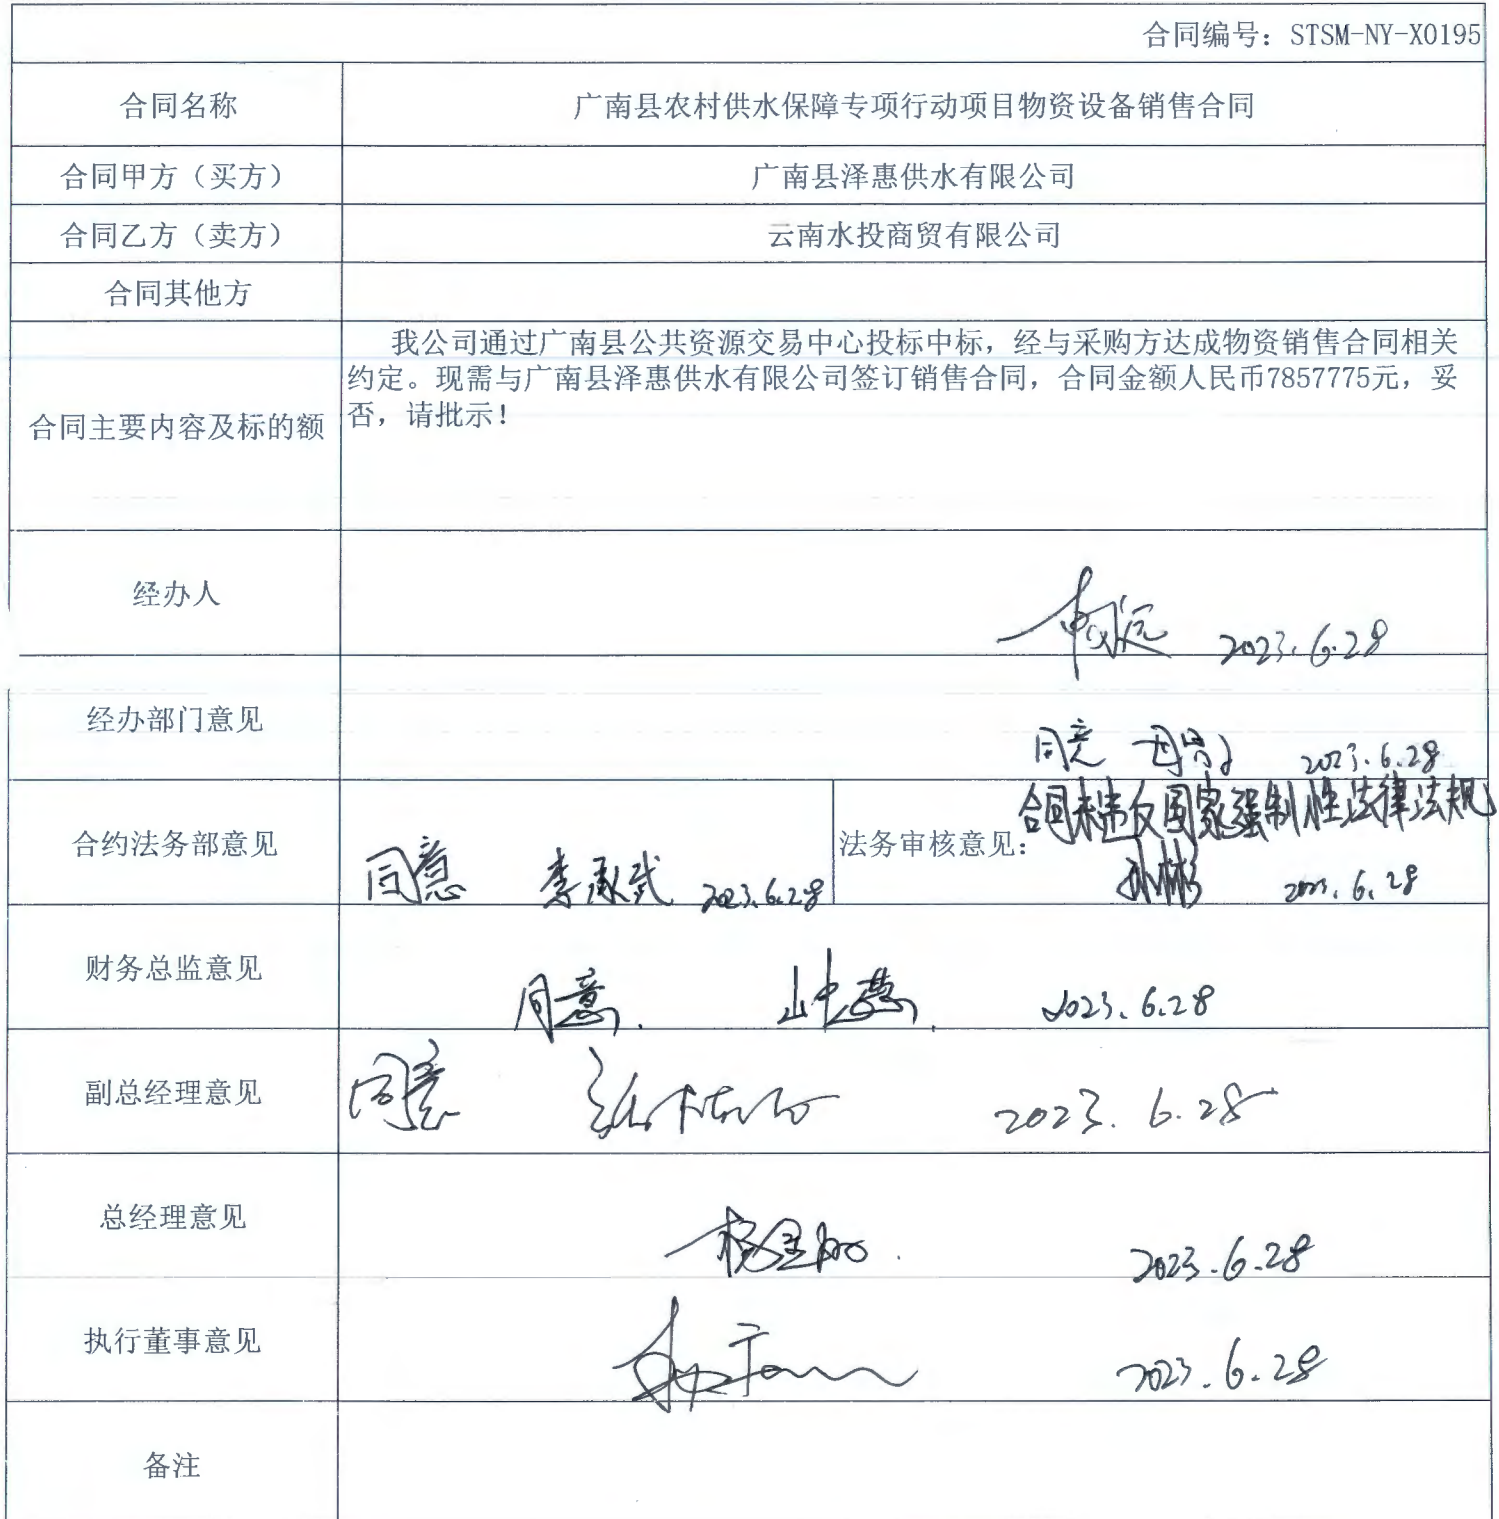 合同编号：STSM-NY-X0195
合同名称
广南县农村供水保障专项行动项目物资设备销售合同
合同甲方（买方）
广南县泽惠供水有限公司
合同乙方（卖方）
云南水投商贸有限公司
合同其他方
合同主要内容及标的额
我公司通过广南县公共资源交易中心投标中标，经与采购方达成物资销售合同相关
约定。现需与广南县泽惠供水有限公司签订销售合同，合同金额人民币7857775元，妥
否，请批示！
经办人
2023.6.28
经办部门意见
同意 2023.6.28
合约法务部意见
同意 李承武 2023.6.28
法务审核意见：
合同未违反国家强制性法律法规
孙彬 2023.6.28
财务总监意见
同意. 2023.6.28
副总经理意见
同意 2023.6.28
总经理意见
2023.6.28
执行董事意见
2023.6.28
备注